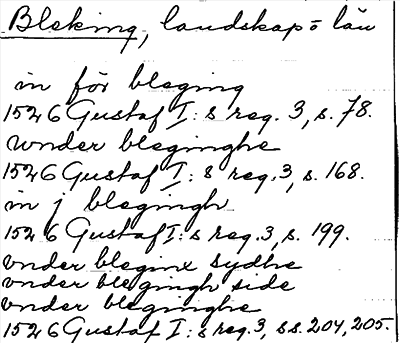 Bleking, landskap o län
in för bleging
1526 Gustaf I:s reg. 3, s. 78.
wnder bleginghe
1526 Gustaf I:s reg. 3, s. 168.
in j blegingh
1526 Gustaf I:s reg. 3, s. 199.
vnder bleginx sydhe
vnder blegingh side
vnder bleginghe
1526 Gustaf I:s reg. 3, ss. 204, 205.